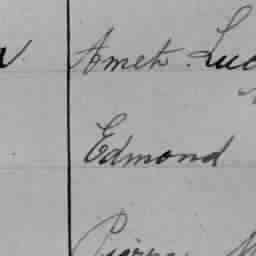 Amet. Luc
Edmond
Pierre M